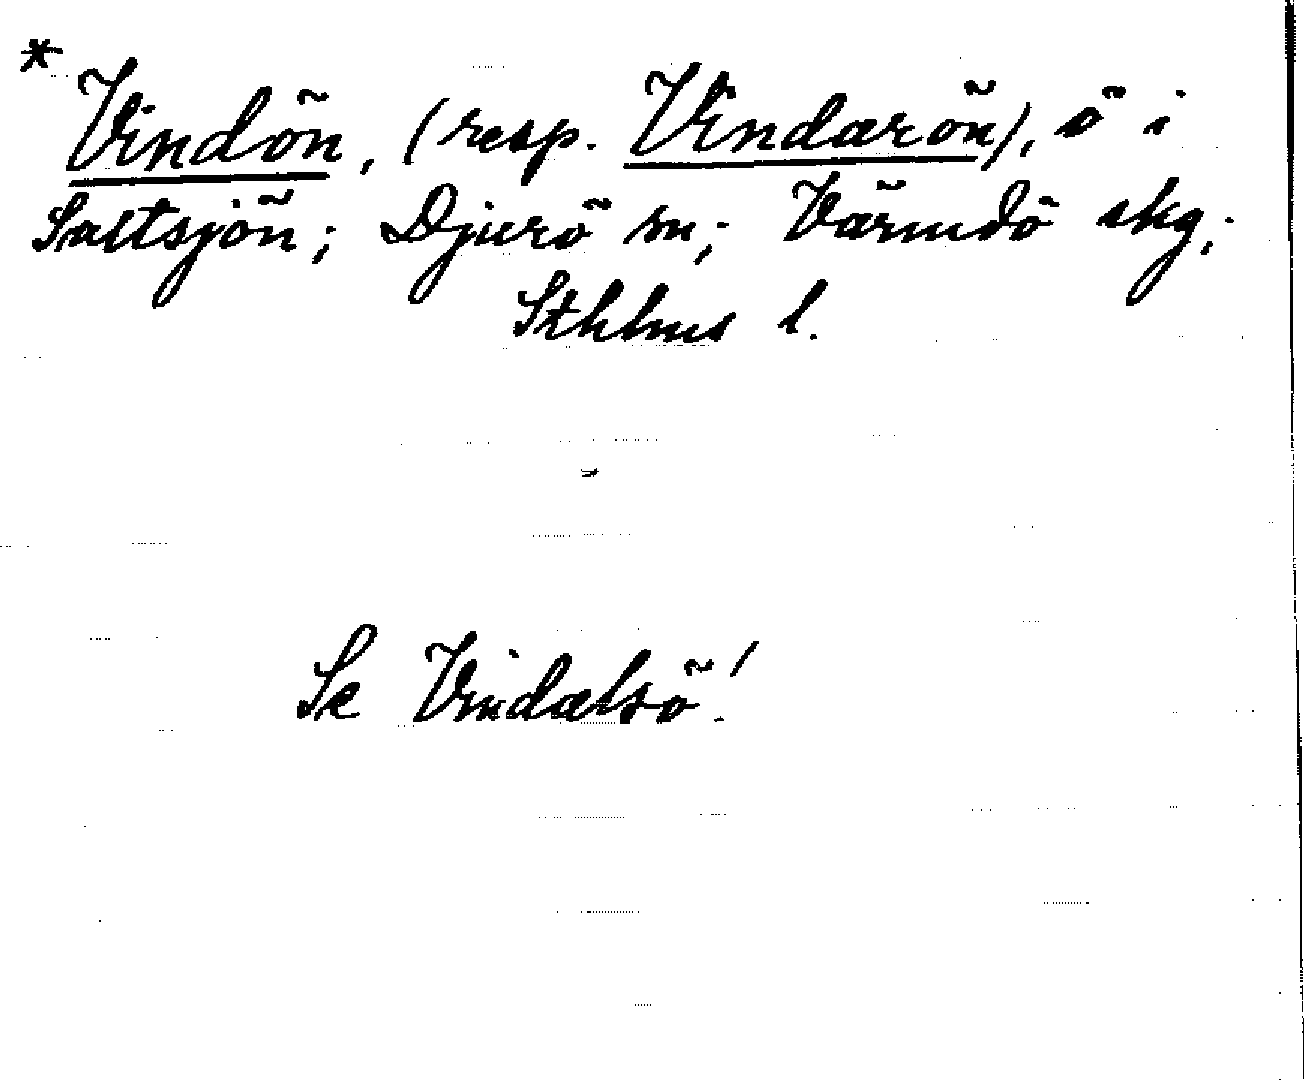 * Vindön, (resp. Vindarön), ö i
Saltsjön; Djurö sn; Värmdö skg;
Sthlms l.
Se Vindalsö!